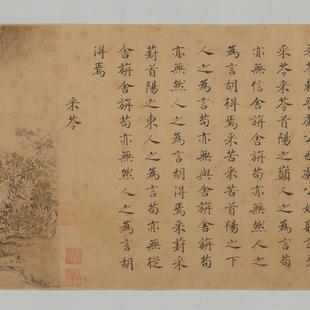 采苓刺晉獻公也獻公好聽讒焉
采苓采苓首陽之巔人之為言苟
亦無信舍旃舍旃苟亦無然人之
為言胡得焉采苦采苦首陽之下
人之為言苟亦無與舍旃舍旃苟
亦無然人之為言胡得焉采葑采
葑首陽之東人之為言苟亦無從
舍旃舍旃苟亦無然人之為言胡
得焉
采苓